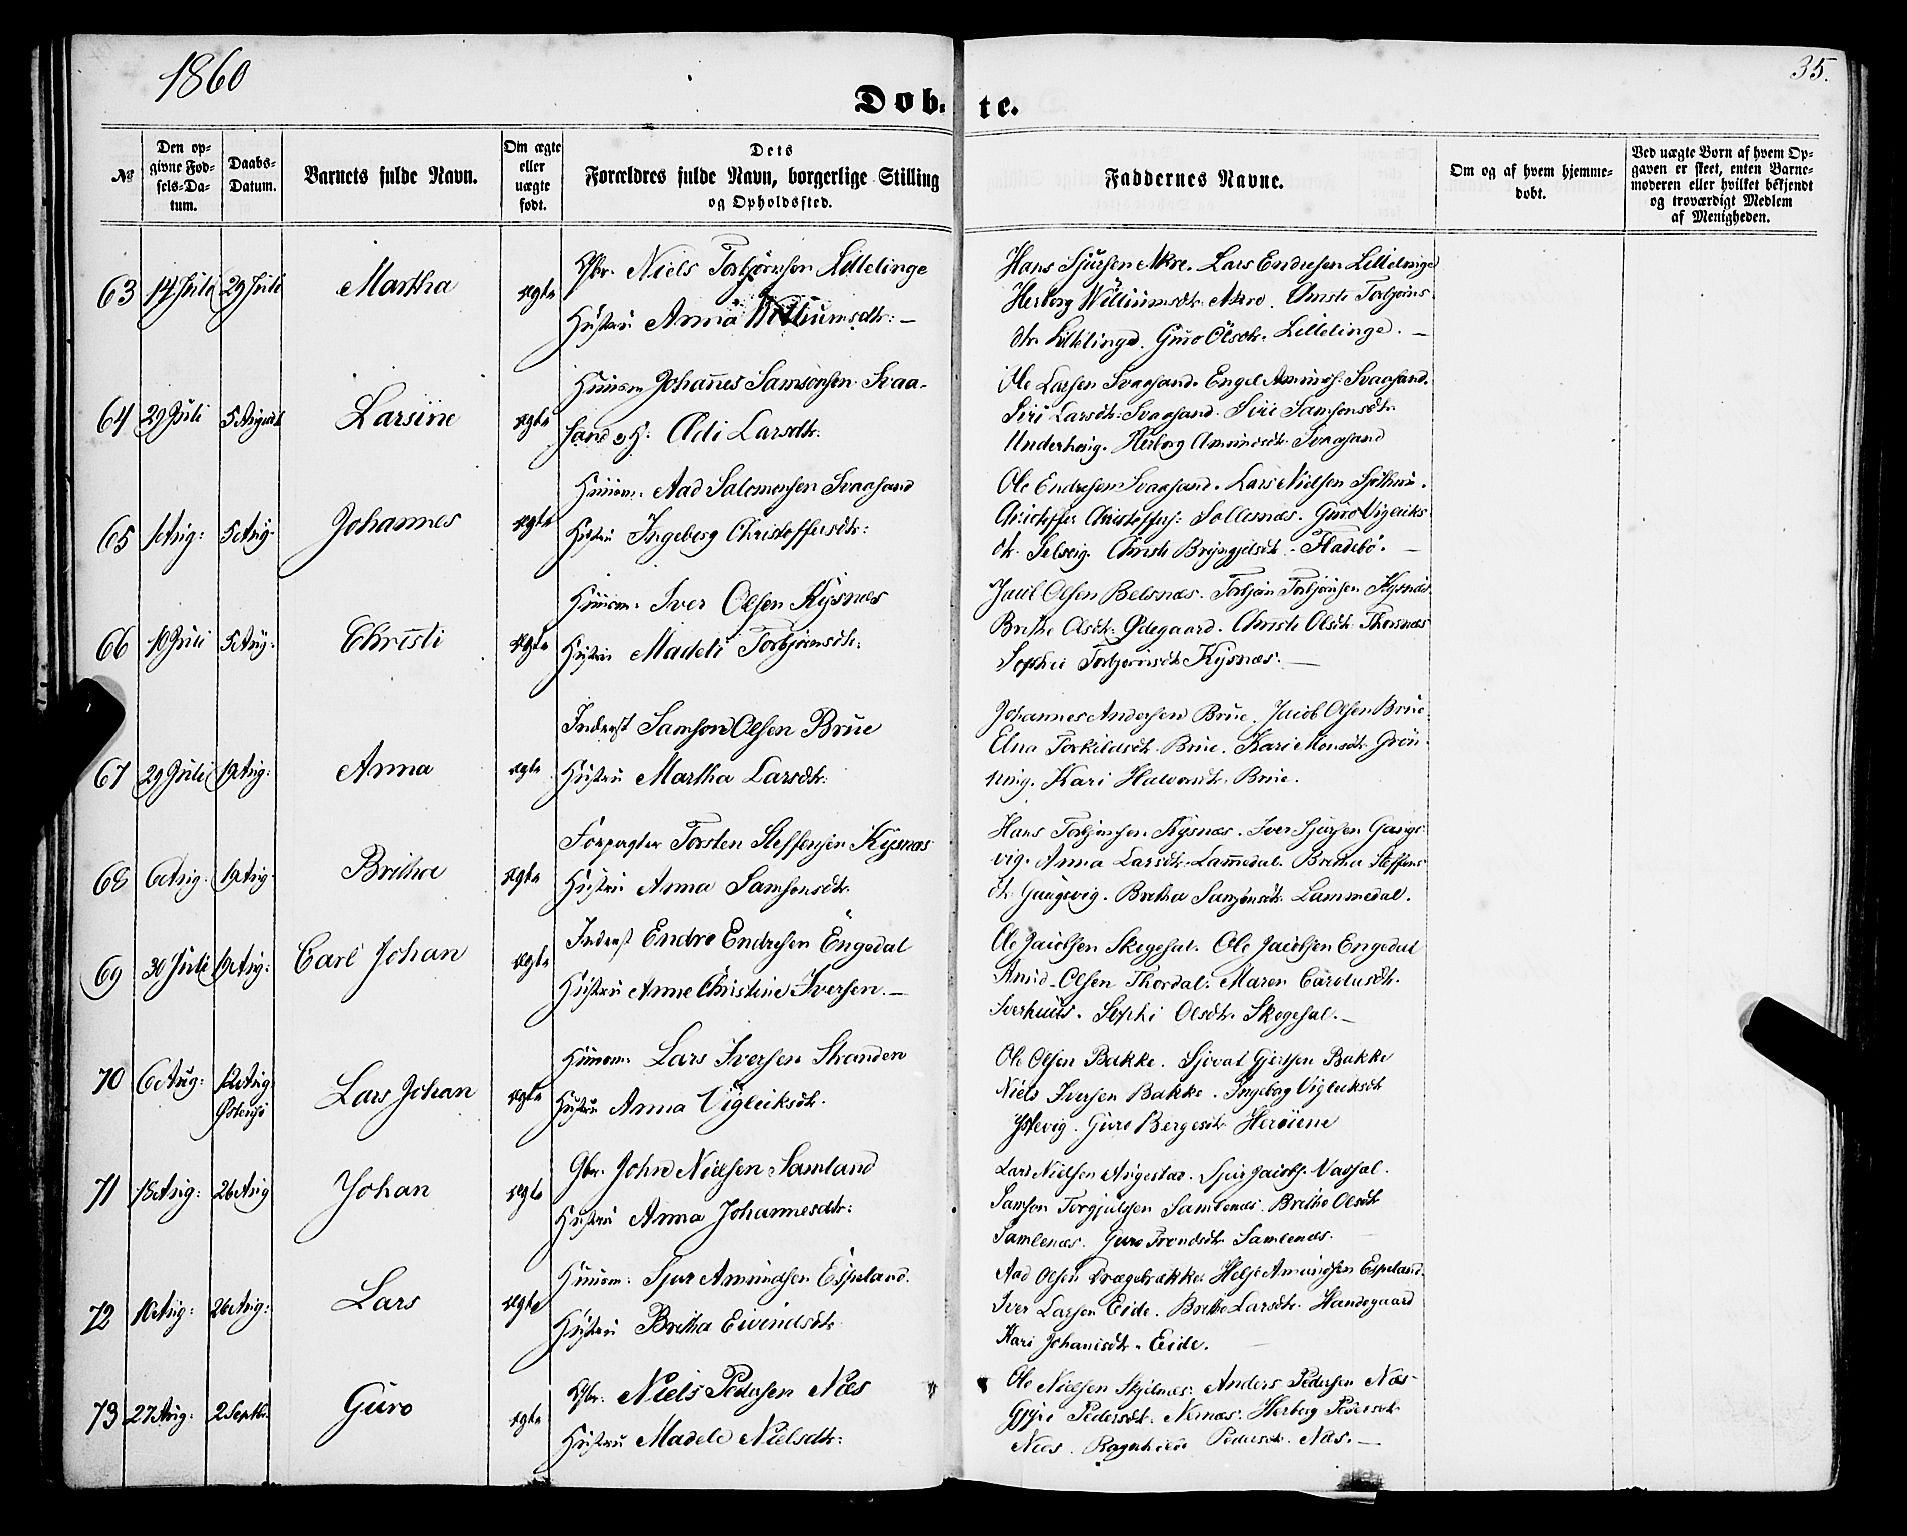 1860
35.
Døb-te.
№
Den op-
givne Fød-
sels-Da-
tum.
Daabs-
Datum.
Barnets fulde Navn.
Om ægte
eller
uægte
født.
Dets
Forældres fulde Navn, borgerlige Stilling
og Opholdssted.
Faddernes Navne.
Om og af hvem hjemme-
døbt.
Ved uægte Børn af hvem Op-
gaven er skeet, enten Barne-
moderen eller hvilket bekjendt
og troværdigt Medlem
af Menigheden.
63 14 Juli 29 Juli Martha ægte
Gbr. Niels Torbjørnsen Lillelinge
Hustru Anna Williumsdtr: —
Hans Sjursen Akre. Lars Endresen Lillelinge
Herborg Williumsdtr. Akre. Christi Torbjøns-
dtr. Lillelinge. Guro Olsdtr. Lillelinge. —
64 29 Juli 5 August Larsine ægte
Huusm Johannes Samsonsen Svaa-
sand o H: Adi Larsdtr:
Ole Larsen Svaasand. Engel Amunds. Svaasand.
Siri Larsdtr. Svaasand. Siri Samsonsdtr.
Underhaug. Herborg Amundsdtr Svaasand
65 1 Aug: 5 Aug. Johannes ægte
Huusm. Aad Salomonsen Svaasand
Hustru Ingeborg Christoffersdtr:
Ole Endresen Svaasand. Lars Nielsen
Christoffer Christoffers: Sollesnæs. Guro Vigleiks-
dtr. Selsvig. Christi Brynjelsdtr. Fladebø. —
66 10 Juli 5 Aug: Christi ægte
Huusm. Iver Olsen Kysnæs
Hustru Madeli Torbjørnsdtr:
Jacob Olsen Belsnæs. Torbjøn Torbjønsen Kysnæs
Brithe Olsdtr. Ødegaard. Christi Olsdtr. Thorsnæs
Sophie Torbjørnsdtr Kysnæs. —
67 29 Juli 19 Aug: Anna ægte
Inderst Samson Olsen Brue
Hustru Martha Larsdtr:
Johannes Andersen Brue. Jacob Olsen Brue.
Elna Torkildsdtr. Brue. Kari Monsdtr. Grøn-
ning. Kari Halvorsdtr. Brue.
68 6 Aug. 19 Aug. Britha ægte
Forpagter Torsten Steffensen Kysnæs
Hustru Anna Samsonsdtr.
Hans Torbjønsen Kysnæs. Iver Sjursen Gangs-
vig. Anna Larsdtr. Lammedal. Britha Steffens-
dtr. Gangsvig. Britha Samsonsdtr. Lammedal.
69 30 Juli 19 Aug: Carl Johan ægte
Inderst Endre Endresen Engedal
Hustru Anne Christine Iversen. —
Ole Jacobsen Skogesal. Ole Jacobsen Engedal
Amund Olsen Thordal. Maren Carolusdtr.
Iverhuus. Sophi Olsdtr. Skogesal. —
70 6 Aug: 12 Aug Østensø Lars Johan ægte
Huusm. Lars Iversen Stranden
Hustru Anna Vigleiksdtr.
Ole Olsen Bakke. Sjovat Gjertsen Bakke
Niels Iversen Bakke. Ingeborg Vigleiksdtr
Ystevig. Guro Bergesdtr. Herøiene
71 15 Aug: 26 Aug Johan ægte
Gbr. John Nielsen Samland
Hustru Anna Johannesdtr:
Lars Nielsen Augestad. Sjur Jacobs. Vassal.
Samson Torgjulsen Samlenæs. Britha Olsdtr
Samlenæs. Guro Trondsdtr. Samlenæs.
72 10 Aug: 26 Aug: Lars ægte
Huusm: Sjur Amundsen Espeland.
Hustru Britha Eivindsdtr.
Aad Olsen Drægebrække Helje Amundsen Espeland.
Iver Larsen Eide. Brithe Larsdtr. Handegaard
Kari Johanisdtr. Eide.
73 27 Aug: 2 Septbr. Guro ægte
Gbr. Niels Pedersen Næs
Hustru Madele Nielsdtr:
Ole Nielsen Skjelnæs. Anders Pedersen Næs
Gjyri Pedersdtr. Nernæs. Herborg Pedersdtr.
Næs. Ragnhilde Pedersdtr. Næs. —